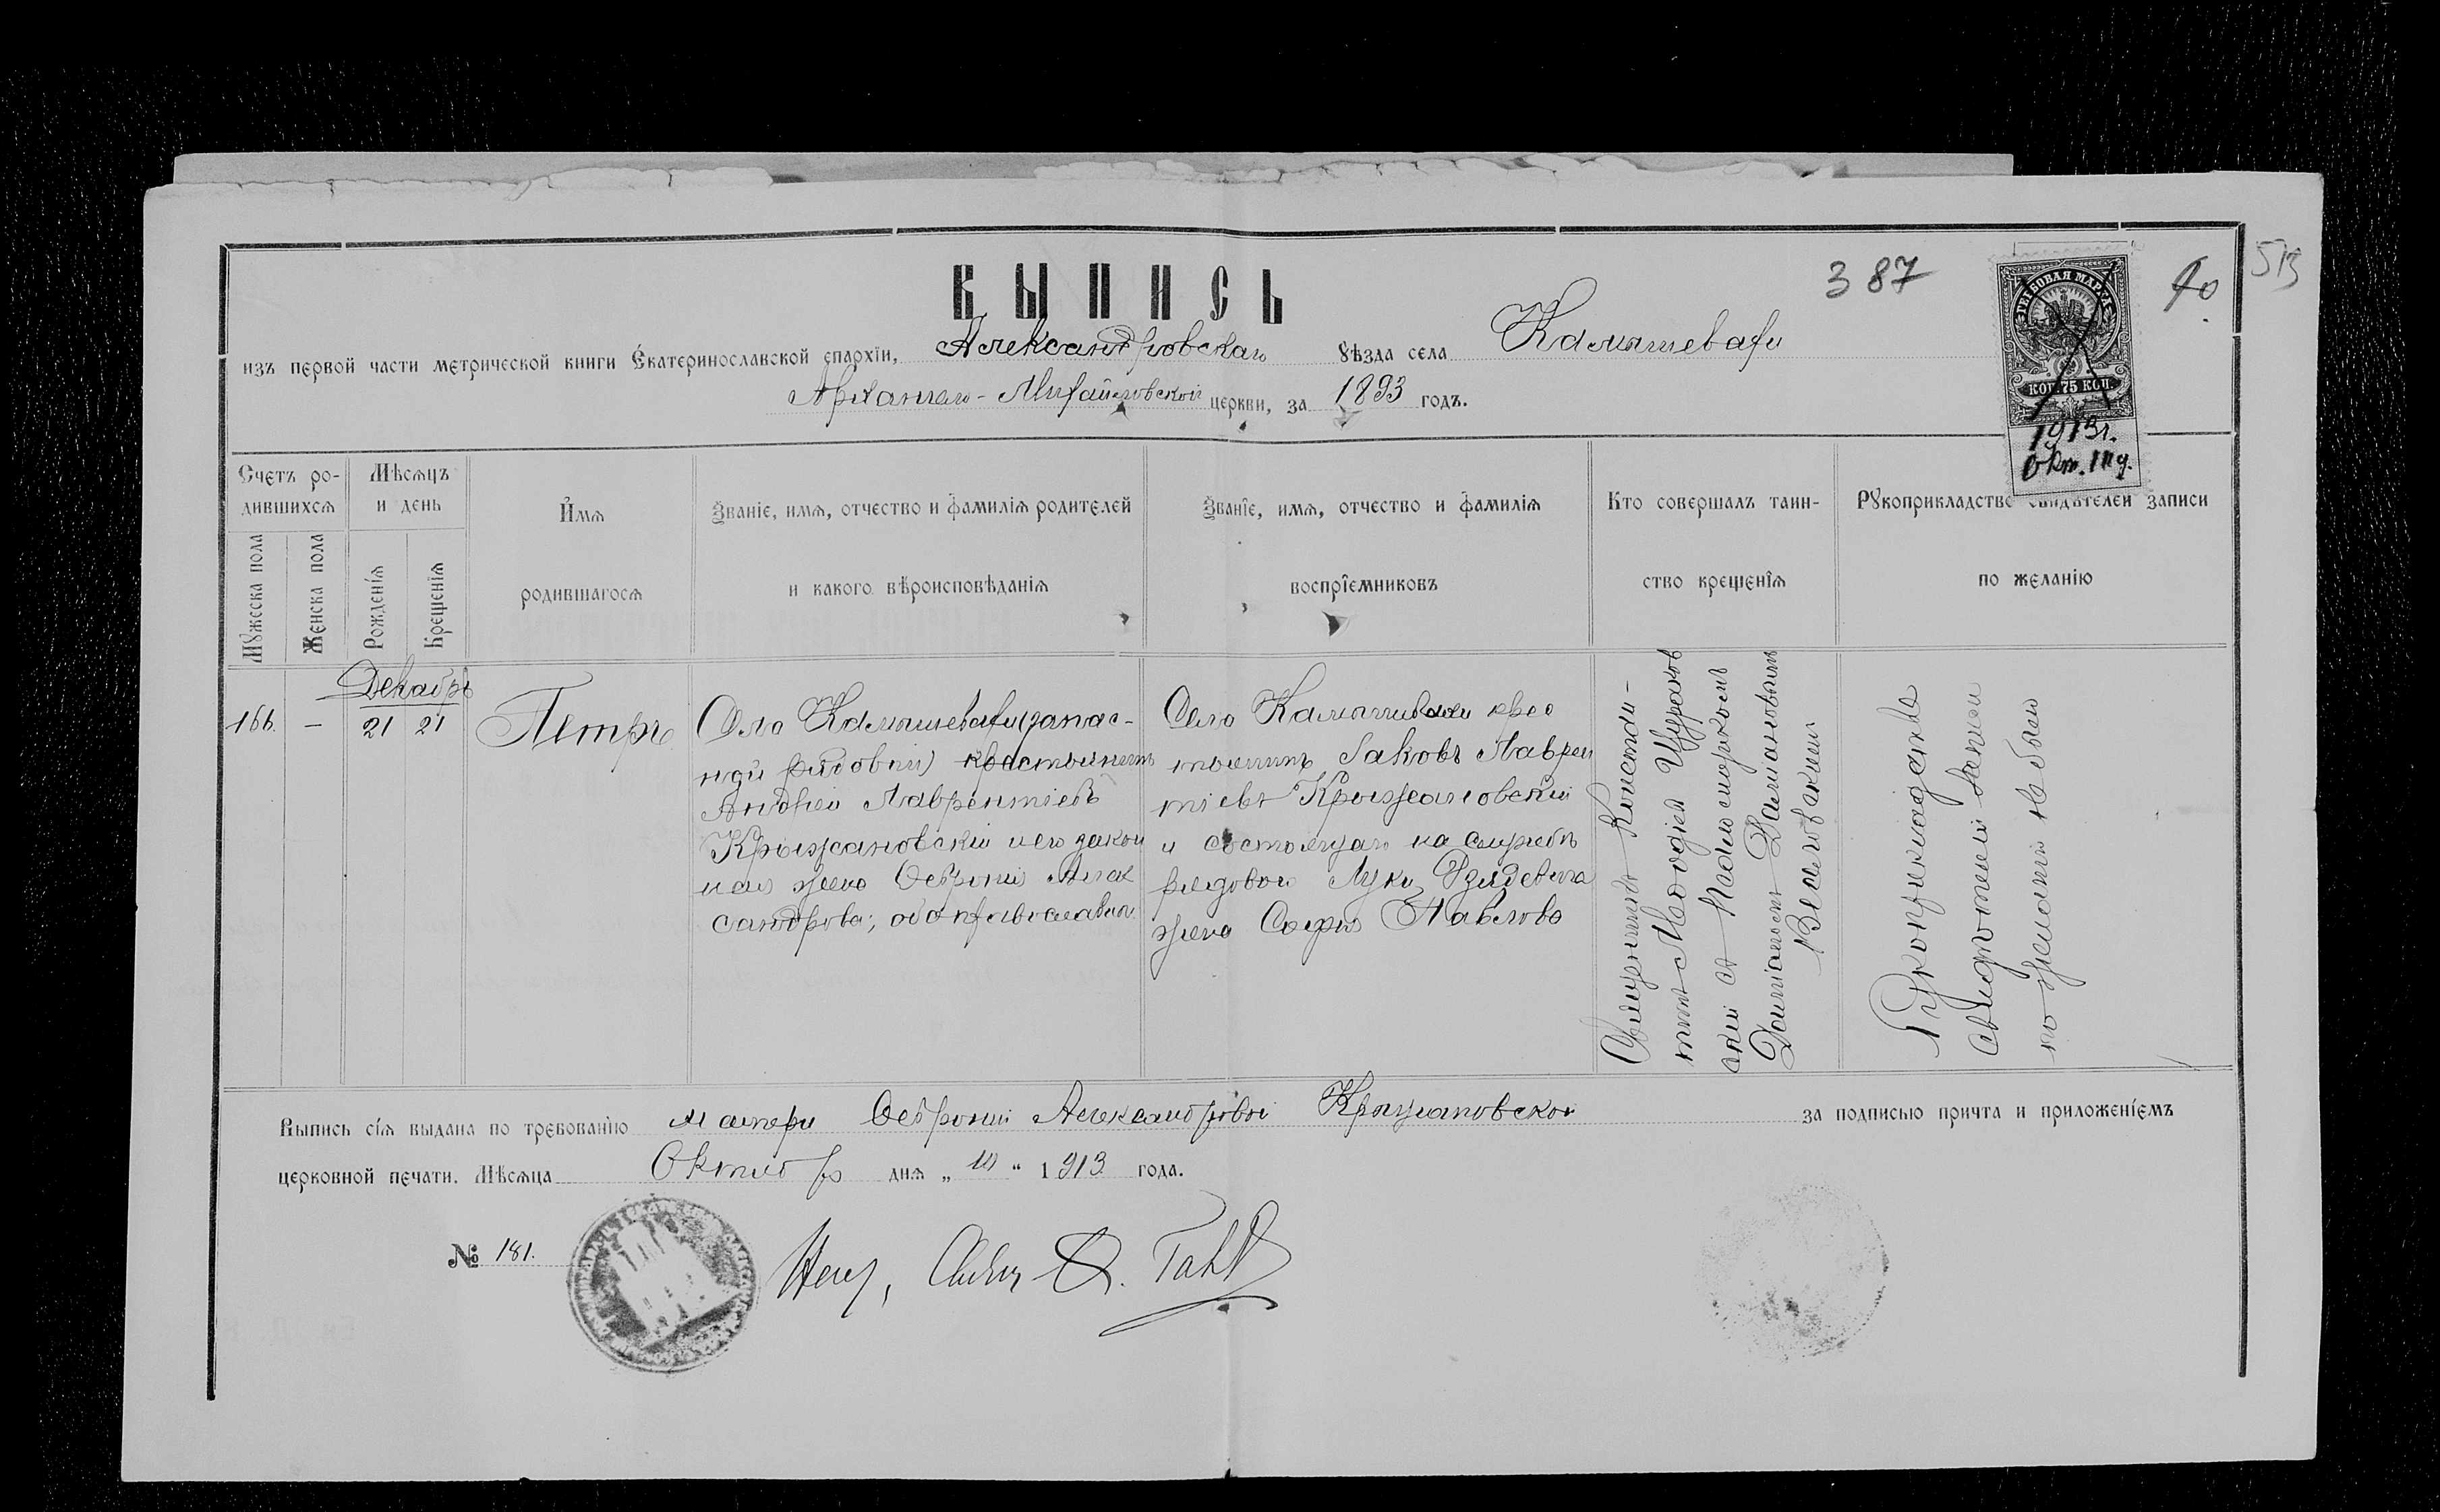 ВЫПИСЬ
387
40
513
изъ первой части метрической книги Екатеринославской епархіи, Александровскаго уѣзда села Камышевахи
Архангело-Михайловской церкви, за 1893 годъ.
ГЕРБОВАЯ МАРКА
КОП. 75 КОП.
1913 г.
Окт. 10 д.
Счетъ ро-
дившихся
Мужеска пола
Женска пола
Мѣсяцъ
и день
Рожденія
Крещенія
Имя
родившагося
Званіе, имя, отчество и фамилія родителей
и какого вѣроисповѣданія
Званіе, имя, отчество и фамилія
воспріемниковъ
Кто совершалъ таин-
ство крещенія
Рукоприкладство свидѣтелей записи
по желанію
166.
—
Декабрь
21 21
Петръ
Села Камышевахи (запас-
ный рядовой) крестьянинъ
Андрей Лаврентіевъ
Крыжановскій и его закон
ная жена Февронія Алек
сандрова; оба православн.
Села Камышевахи крес
тьянинъ Іаковъ Лаврен
тіевъ Крыжановскій
и состоящаго на службѣ
рядового Луки
жена Софія Павлова
Священникъ Констан-
тинъ Меѳодіев
скій съ Псаломщикомъ
Даміаномъ
Рукоприкладства
свидѣтелей записи
по желанію не было
Выпись сія выдана по требованію матери Февроніи Александровой Крыжановской за подписью причта и приложеніемъ
церковной печати. Мѣсяца Октября дня „ 10 “ 1913 года.
№ 181.